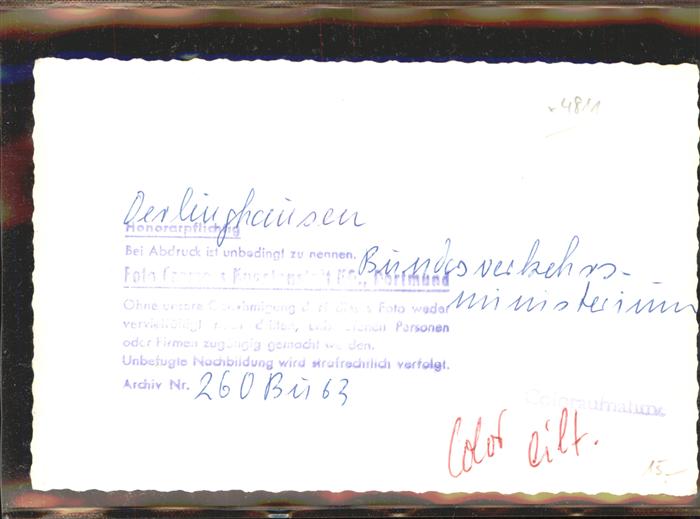 4811
Oerlinghausen
Honorarpflichtig
Bei Abdruck ist unbedingt zu nennen.
Bundesverkehrs-
Foto Kunstanstalt KG., Dortmund
ministerium
Ohne unsere Genehmigung darf dieses Foto weder
vervielfältigt noch dritten Personen
oder Firmen zugängig gemacht werden.
Unbefugte Nachbildung wird strafrechtlich verfolgt.
Archiv Nr. 260 Bu 63
Coloraufnahme
Color eilt.
15.-